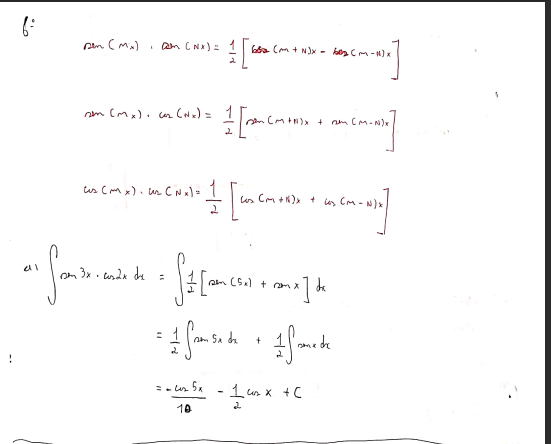 f:
sen (Mx) . sen (Nx) = 1/2 [cos (M + N)x - cos (M - N)x]
sen (Mx) . cos (Nx) = 1/2 [sen (M+N)x + sen (M-N)x]
cos (Mx) . cos (Nx) = 1/2 [cos (M+N)x + cos (M-N)x]
a) ∫ sen 3x . cos 2x dx = ∫ 1/2 [sen (5x) + sen x] dx
= 1/2 ∫ sen 5x dx + 1/2 ∫ sen x dx
= - cos 5x / 10 - 1/2 cos x + C